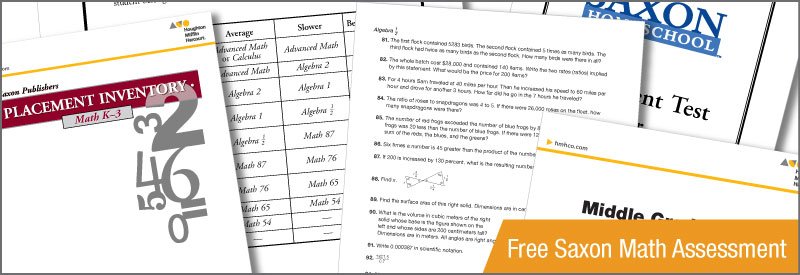 Houghton
Mifflin
Harcourt
Saxon Publishers
PLACEMENT INVENTORY
Math K–3
Average
Slower
Advanced Math
or Calculus
Advanced Math
Algebra 2
Algebra 2
Algebra 1
Algebra 1
Algebra 1
Algebra ½
Algebra ½
Math 87
Math 87
Math 76
Math 76
Math 65
Math 65
Math 54
Math 54
Algebra ½
81. The first flock contained 5283 birds. The second flock contained 5 times as many birds. The
third flock had twice as many birds as the second flock. How many birds were there in all?
82. The whole batch cost $28,000 and contained 140 items. Write the two rates (ratios) implied
by this statement. What would be the price for 200 items?
83. For 4 hours Sam traveled at 40 miles per hour. Then he increased his speed to 60 miles per
hour and drove for another 3 hours. How far did he go in the 7 hours he traveled?
84. The ratio of roses to snapdragons was 4 to 5. If there were 26,000 roses on the float, how
many snapdragons were there?
85. The number of red frogs exceeded the number of blue frogs by
frogs was 20 less than the number of blue frogs. If there were
sum of the reds, the blues, and the greens?
86. Six times a number is 45 greater than the product of the number
87. If 200 is increased by 130 percent, what is the resulting number
88. Find x.
89. Find the surface area of this right solid. Dimensions are in
90. What is the volume in cubic meters of the right
solid whose base is the figure shown on the
left and whose sides are 200 centimeters tall?
Dimensions are in meters. All angles are right
91. Write 0.000387 in scientific notation.
92.
SAXON
HOMESCHOOL
Test
hmhco.com
Middle
Free Saxon Math Assessment